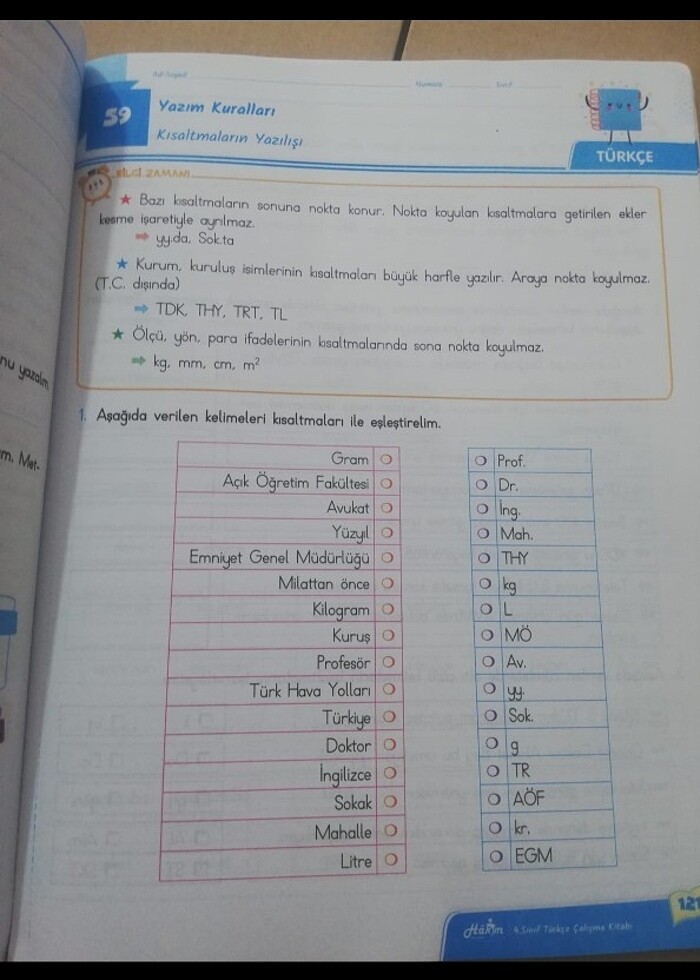 Adı-Soyadı
Numara
Sınıf
59
Yazım Kuralları
Kısaltmaların Yazılışı
TÜRKÇE
BİLGİ ZAMANI
Bazı kısaltmaların sonuna nokta konur. Nokta koyulan kısaltmalara getirilen ekler
kesme işaretiyle ayrılmaz.
yy.da, Sok.ta
Kurum, kuruluş isimlerinin kısaltmaları büyük harfle yazılır. Araya nokta koyulmaz.
(T.C. dışında)
TDK, THY, TRT, TL
Ölçü, yön, para ifadelerinin kısaltmalarında sona nokta koyulmaz.
kg, mm, cm, m²
nu yazalım
m. Met-
1. Aşağıda verilen kelimeleri kısaltmaları ile eşleştirelim.
Gram Prof.
Açık Öğretim Fakültesi Dr.
Avukat İng.
Yüzyıl Mah.
Emniyet Genel Müdürlüğü THY
Milattan önce kg
Kilogram L
Kuruş MÖ
Profesör Av.
Türk Hava Yolları yy.
Türkiye Sok.
Doktor g
İngilizce TR
Sokak AÖF
Mahalle kr.
Litre EGM
121
Hâkim 4. Sınıf Türkçe Çalışma Kitabı